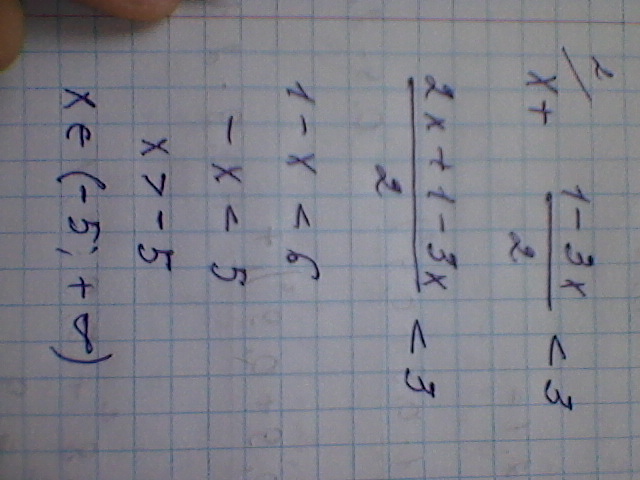 2/ x + (1-3x)/2 < 3
(2x+1-3x)/2 < 3
1-x < 6
-x < 5
x > -5
x ∈ (-5; +∞)